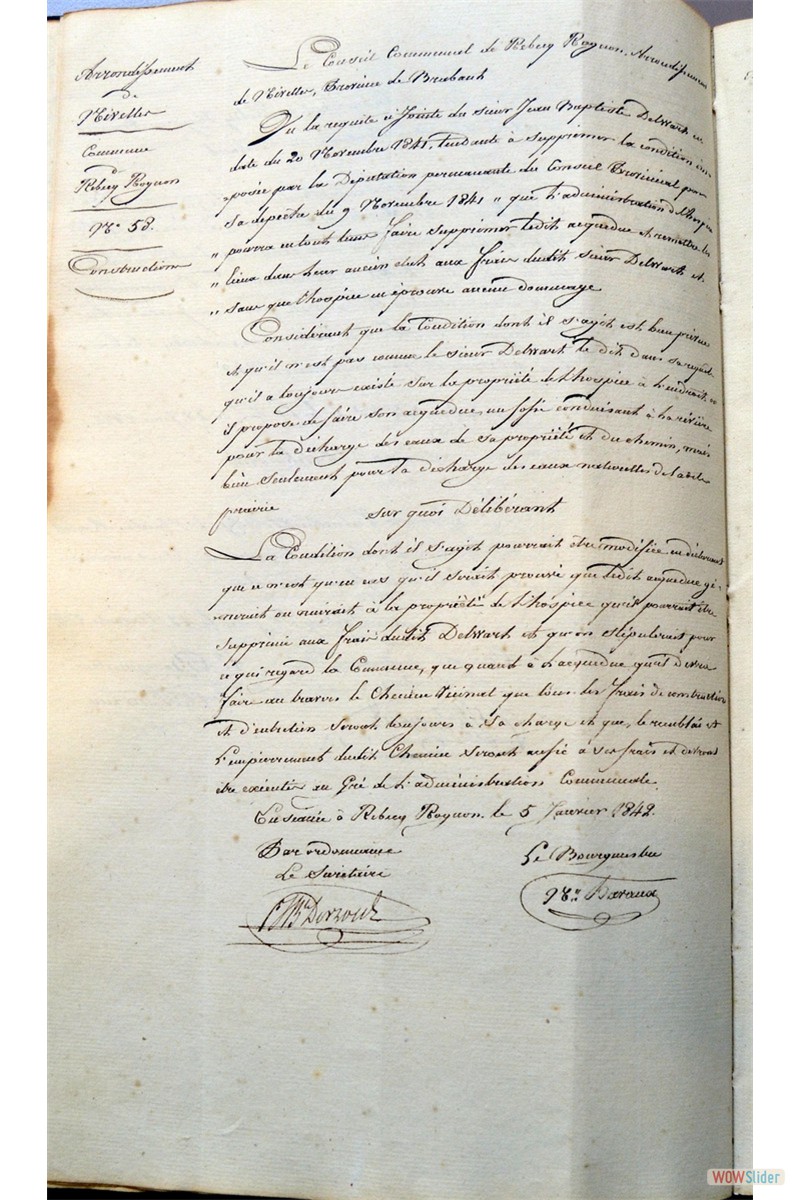 Arrondissement
de
Nivelles
Commune
de
Rebecq Rognon
N° 58.
Construction
Le Conseil Communal de Rebecq Rognon, Arrondissement
de Nivelles, Province de Brabant
Vu la requête ci jointe du sieur Jean Baptiste Delwart en
date du 20 Novembre 1841, tendante à supprimer la condition im-
posée par la Députation permanante du Conseil Provincial par
sa depeche du 9 Novembre 1841 " que l'administration de l'hospice
" pourra en tout tems faire supprimer ledit acqueduc et remettre les
" lieux dans leur ancien etat aux frais dudit sieur Delwart et
" sans que l'hospice en éprouve aucun dommage
Considérant que la Condition dont il s'agit est bien prévue
et qu'il n'est pas comme le sieur Delwart le dit dans sa requête
qu'il a toujours existé sur la propriété de l'hospice à l'endroit où
il propose de faire son acqueduc, un fossé conduisant à la rivière
pour la décharge des eaux de sa propriété et du chemin, mais
bien seulement pour la décharge des eaux naturelles de la dite
prairie
Sur quoi Délibérant
La Condition dont il s'agit pourrait être modifiée en déclarant
que ce n'est qu'en cas qu'il serait prouvé que ledit acqueduc gé-
nerait ou nuirait à la propriété de l'hospice qu'il pourrait être
supprimé aux frais dudit Delwart et qu'on stipulerait pour
ce qui regard la Commune, que quand à l'acqueduc qu'il devra
faire au travers le Chemin Vicinal que tous les frais de construction
et d'entretien seront toujours à sa charge et que, le remblai et
l'empierrement dudit Chemin seront aussi à ses frais et devront
être exécutés au Gré de l'administration Communale.
En séance à Rebecq Rognon, le 5 Janvier 1842.
Par ordonnance
Le Bourgmestre
Le Secrétaire
WOWSlider